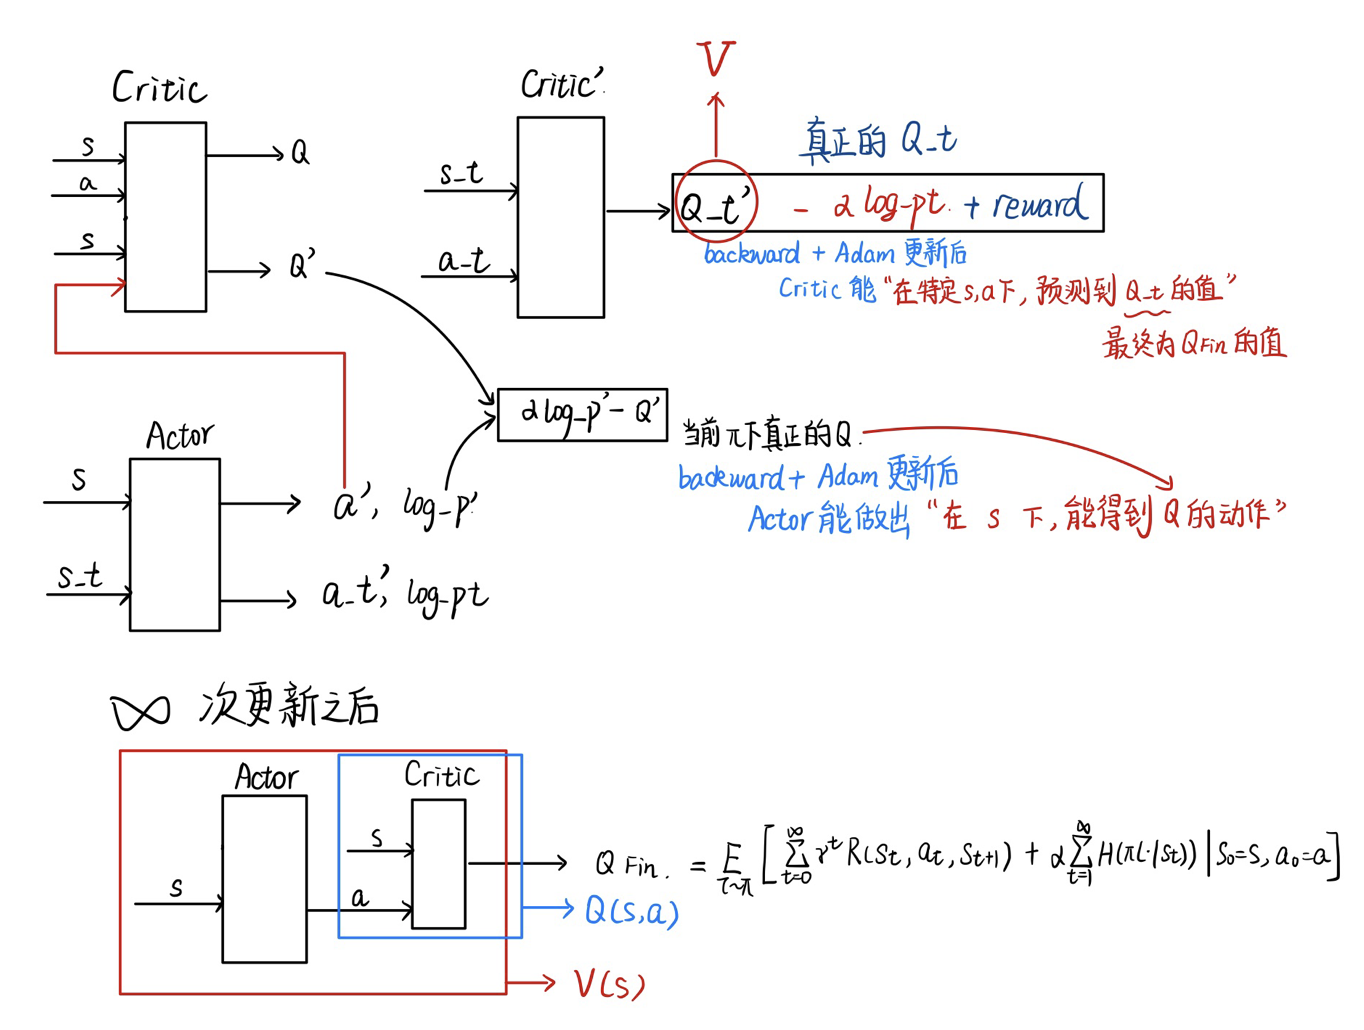 Critic
s
a
s
Q
Q'
Critic'
s_t
a_t
V
真正的 Q_t
Q_t' - α log_pt. + reward
backward + Adam 更新后
Critic 能 "在特定 s,a 下, 预测到 Q_t 的值"
最终为 QFin 的值
αlog_p' - Q'
当前π下真正的Q.
backward + Adam 更新后
Actor 能做出 "在 s 下, 能得到 Q 的动作"
Actor
s
s_t
a', log_p'
a_t', log_pt
∞ 次更新之后
Actor
Critic
s
s
a
Q Fin. = E τ~π [ ∑ t=0 ∞ γ^t R(St, at, St+1) + α ∑ t=1 ∞ H(π(·|St)) | S0=S, a0=a ]
Q(S,a)
V(S)